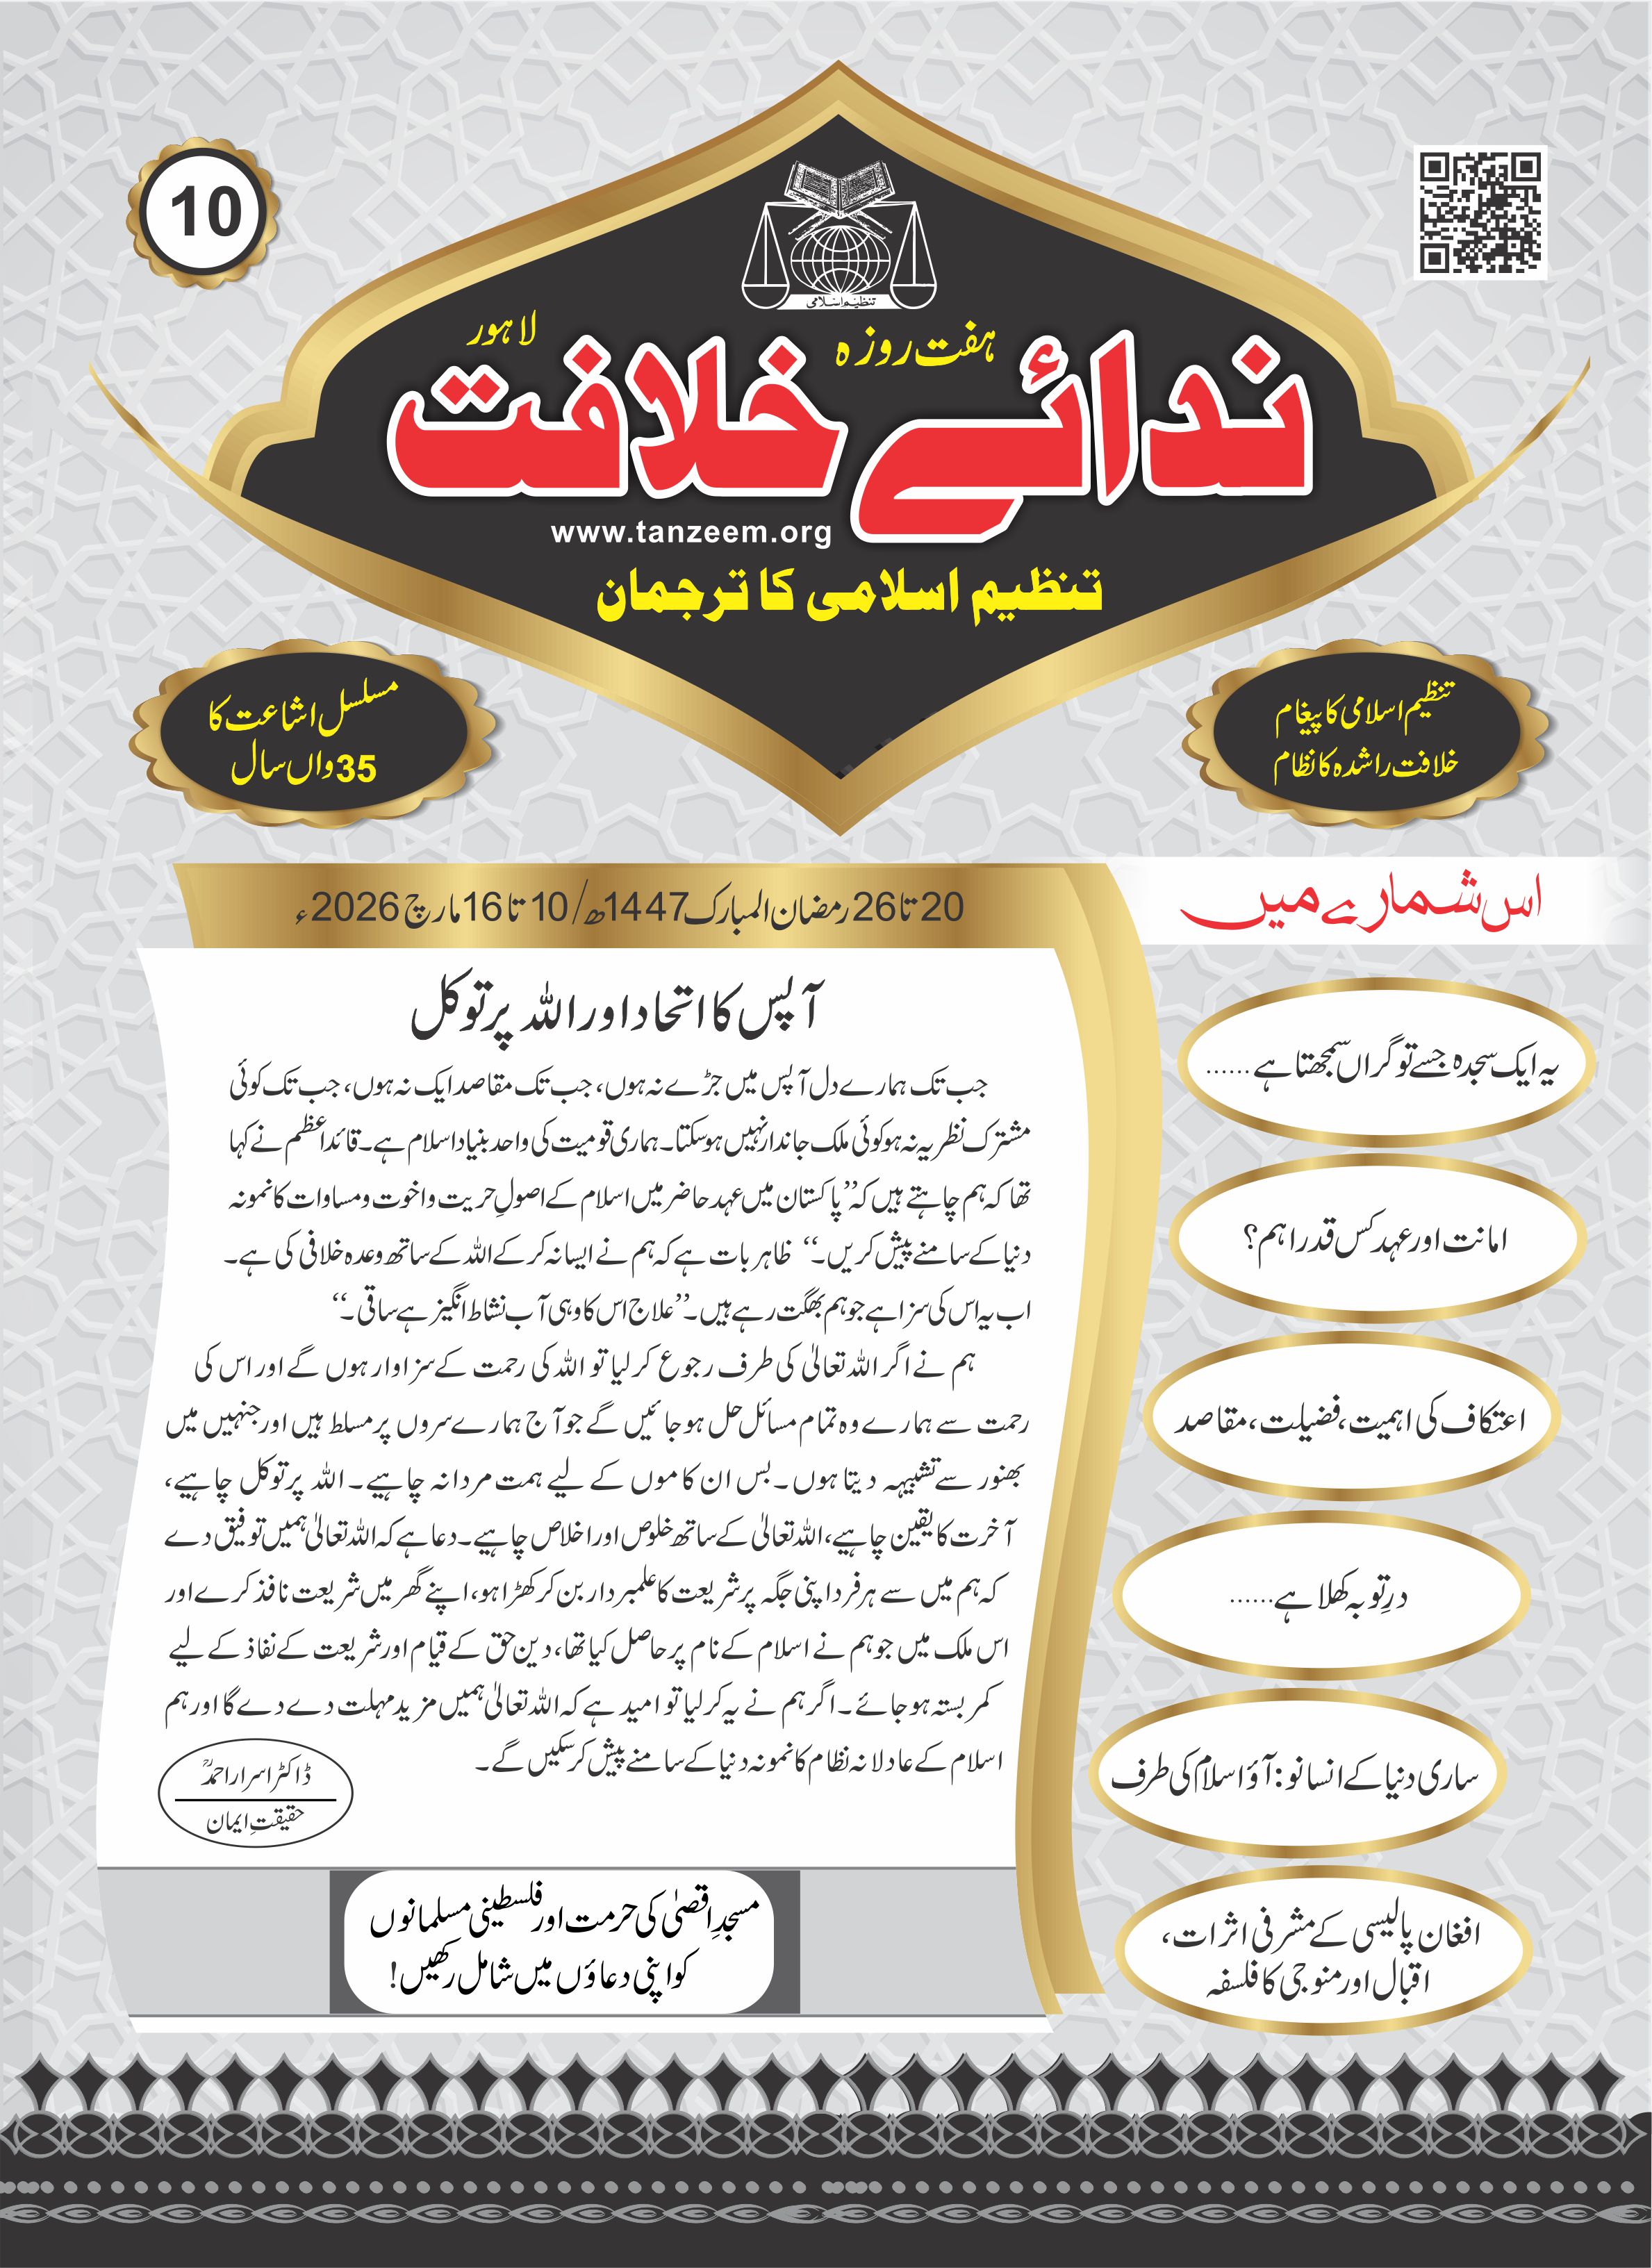 10
تنظیم اسلامی
ہفت روزہ
لاہور
ندائے خلافت
www.tanzeem.org
تنظیم اسلامی کا ترجمان
تنظیم اسلامی کا پیغام
خلافت راشدہ کا نظام
مسلسل اشاعت کا
35واں سال
20 تا 26 رمضان المبارک 1447ھ/ 10 تا 16 مارچ 2026ء
آپس کا اتحاد اور اللہ پر توکل
جب تک ہمارے دل آپس میں جڑے نہ ہوں، جب تک مقاصد ایک نہ ہوں، جب تک کوئی
مشترک نظریہ نہ ہو کوئی ملک جاندار نہیں ہو سکتا۔ ہماری قومیت کی واحد بنیاد اسلام ہے۔ قائداعظم نے کہا
تھا کہ ہم چاہتے ہیں کہ ”پاکستان میں عہد حاضر میں اسلام کے اصولِ حریت و اخوت و مساوات کا نمونہ
دنیا کے سامنے پیش کریں۔“ ظاہر بات ہے کہ ہم نے ایسا نہ کر کے اللہ کے ساتھ وعدہ خلافی کی ہے۔
اب یہ اس کی سزا ہے جو ہم بھگت رہے ہیں۔ ”علاج اس کا وہی آب نشاط انگیز ہے ساقی۔“
ہم نے اگر اللہ تعالیٰ کی طرف رجوع کر لیا تو اللہ کی رحمت کے سزاوار ہوں گے اور اس کی
رحمت سے ہمارے وہ تمام مسائل حل ہو جائیں گے جو آج ہمارے سروں پر مسلط ہیں اور جنہیں میں
بھنور سے تشبیہہ دیتا ہوں۔ بس ان کاموں کے لیے ہمت مردانہ چاہیے۔ اللہ پر توکل چاہیے،
آخرت کا یقین چاہیے، اللہ تعالیٰ کے ساتھ خلوص اور اخلاص چاہیے۔ دعا ہے کہ اللہ تعالیٰ ہمیں توفیق دے
کہ ہم میں سے ہر فرد اپنی جگہ پر شریعت کا علمبردار بن کر کھڑا ہو، اپنے گھر میں شریعت نافذ کرے اور
اس ملک میں جو ہم نے اسلام کے نام پر حاصل کیا تھا، دین حق کے قیام اور شریعت کے نفاذ کے لیے
کمر بستہ ہو جائے۔ اگر ہم نے یہ کر لیا تو امید ہے کہ اللہ تعالیٰ ہمیں مزید مہلت دے دے گا اور ہم
اسلام کے عادلانہ نظام کا نمونہ دنیا کے سامنے پیش کر سکیں گے۔
ڈاکٹر اسرار احمدؒ
حقیقتِ ایمان
مسجدِ اقصیٰ کی حرمت اور فلسطینی مسلمانوں
کو اپنی دعاؤں میں شامل رکھیں!
اس شمارے میں
یہ ایک سجدہ جسے تو گراں سمجھتا ہے ......
امانت اور عہد کس قدر اہم؟
اعتکاف کی اہمیت، فضیلت، مقاصد
درِ توبہ کھلا ہے ......
ساری دنیا کے انسانو: آؤ اسلام کی طرف
افغان پالیسی کے مشرفی اثرات،
اقبال اور منوجی کا فلسفہ